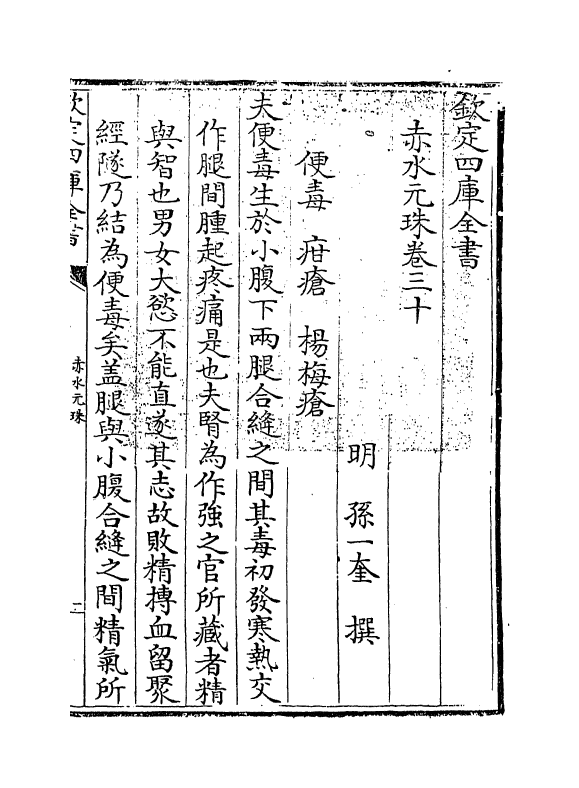 欽定四庫全書
赤水元珠卷三十
明　孫一奎　撰
便毒　疳瘡　楊梅瘡
夫便毒生於小腹下兩腿合縫之間其毒初發寒熱交
作腿間腫起疼痛是也夫腎為作強之官所藏者精
與智也男女大慾不能直遂其志故敗精搏血留聚
經隧乃結為便毒矣盖腿與小腹合縫之間精氣所
欽定四庫全書
赤水元珠